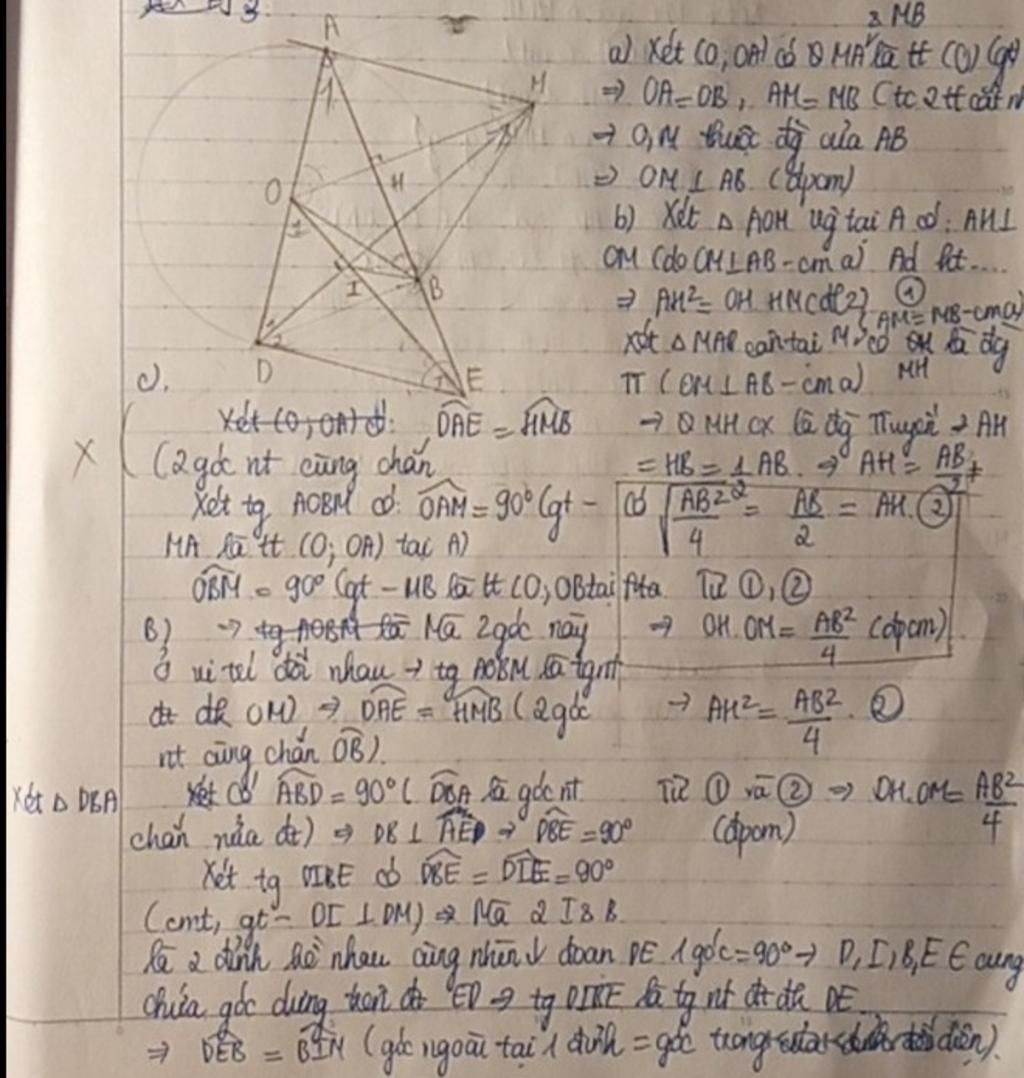 A
M
O
H
1
I
B
D
E
& MB
a) Xét (O; OA) có MA là tt (O) (gt)
⇒ OA = OB, AM = MB (tc 2 tt cắt n
→ O, M thuộc đg của AB
⇒ OM ⊥ AB (đpcm)
b) Xét △ AOM vg tại A có: AH ⊥
OM (do OM ⊥ AB - cm a) Ad ht....
⇒ AH² = OH. HM (dl2) ①
Xét △ MAB cân tại M có MH là đg
(AM = MB - cm a)
π (OM ⊥ AB - cm a)
→ MH cx là đg π tuyến → AH
= HB = 1 AB. → AH = AB/2
Có √AB²/4 = AB/2 = AH. ②
Từ ①, ②
⇒ OH. OM = AB²/4 (đpcm)
→ AH² = AB²/4. ②
Từ ① và ② ⇒ OH. OM = AB²/4
(đpcm)
c).
Xét (O; OA) có: DAE = HMB
X (2 góc nt cùng chắn
Xét tg AOBM có: OAM = 90° (gt -
MA là tt (O; OA) tại A)
OBM = 90° (gt - MB là tt (O; OB tại
B) → tg AOBM là Mà 2 góc này
ở vị tri đối nhau → tg AOBM là tgnt
đt đk OM) ⇒ DAE = HMB (2 góc
nt cùng chắn OB).
Xét △ DBA
Xét Có ABD = 90° (DBA là góc nt
chắn nửa đt) ⇒ DB ⊥ AE → DBE = 90°
Xét tg DIBE có DBE = DIE = 90°
(cmt, gt - OI ⊥ DM) → Mà 2 I & B
là 2 đỉnh kề nhau cùng nhìn ↓ đoạn DE 1 góc = 90° → D, I, B, E ∈ cung
chứa góc dựng trên đt ED → tg DIBE là tg nt đt đk DE
⇒ DEB = BIM (góc ngoài tại 1 đỉnh = góc trong đối diện).